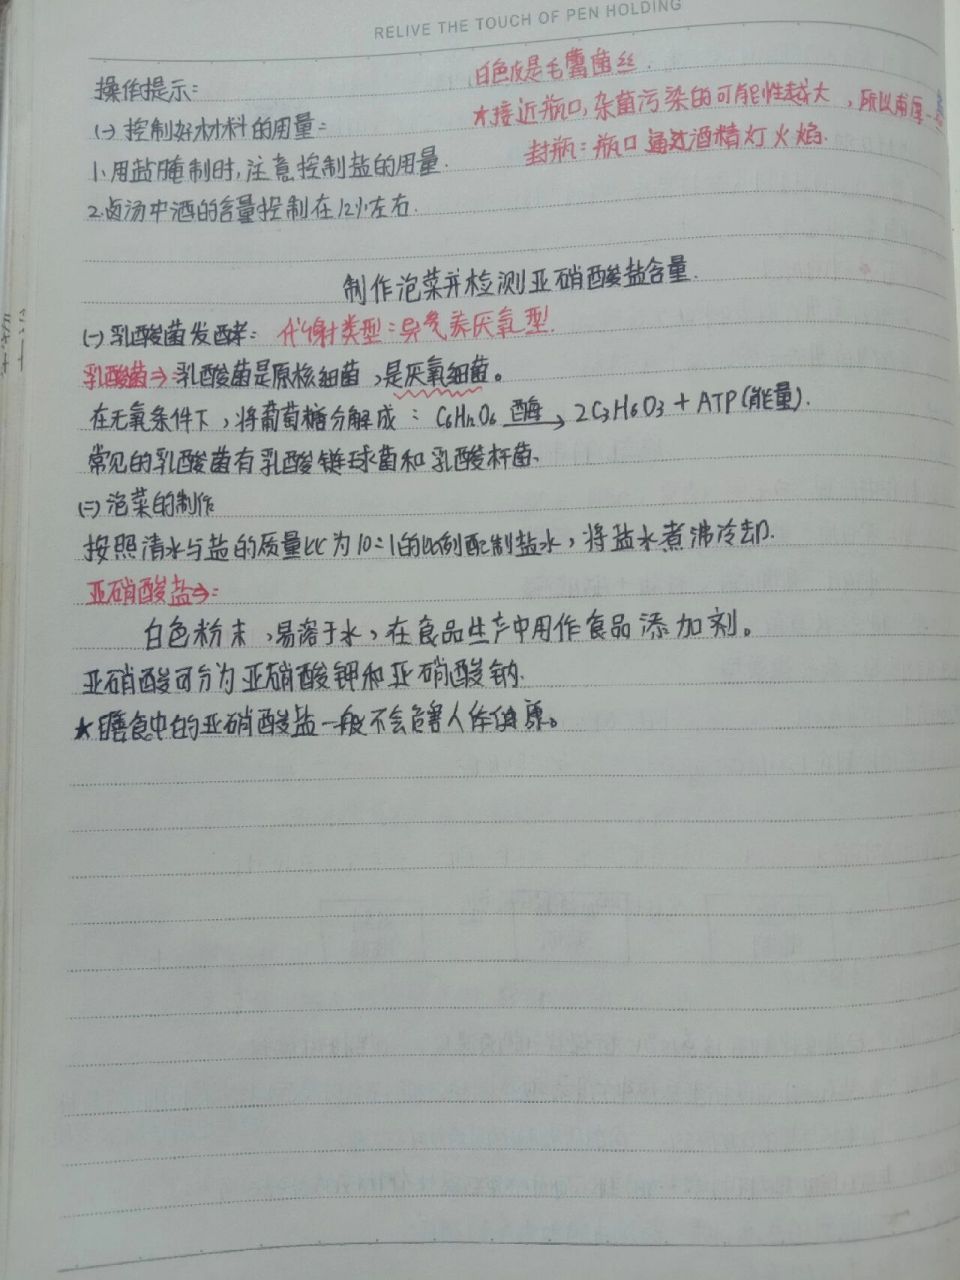 RELIVE THE TOUCH OF PEN HOLDING
白色皮是毛霉菌丝.
操作提示:
★接近瓶口,杂菌污染的可能性越大,所以
(一)控制好材料的用量:
封瓶:瓶口通过酒精灯火焰.
1.用盐腌制时,注意控制盐的用量.
2.卤汤中酒的含量控制在12%左右.
制作泡菜并检测亚硝酸盐含量.
(一)乳酸菌发酵: 代谢类型:异养厌氧型.
乳酸菌⇒乳酸菌是原核细菌,是厌氧细菌。
在无氧条件下,将葡萄糖分解成: C6H12O6 酶→ 2C3H6O3 + ATP(能量).
常见的乳酸菌有乳酸链球菌和乳酸杆菌.
(二)泡菜的制作
按照清水与盐的质量比为10:1的比例配制盐水,将盐水煮沸冷却.
亚硝酸盐⇒:
白色粉末,易溶于水,在食品生产中用作食品添加剂。
亚硝酸可分为亚硝酸钾和亚硝酸钠.
★膳食中的亚硝酸盐一般不会危害人体健康。